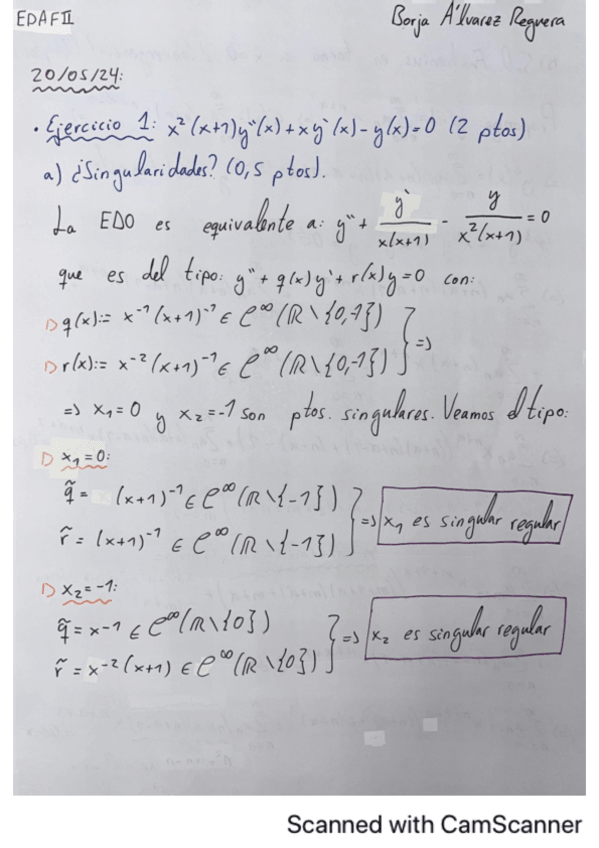 EDAFII
Borja Álvarez Reguera
20/05/24:
• Ejercicio 1: x²(x+1)y''(x)+xy'(x)-y(x)=0 (2 ptos)
a) ¿Singularidades? (0,5 ptos).
La EDO es equivalente a: y'' + y'/x(x+1) - y/x²(x+1) = 0
que es del tipo: y''+q(x)y'+r(x)y=0 con:
▷ q(x):= x⁻¹(x+1)⁻¹ ∈ C^∞(ℝ\{0,-1})
▷ r(x):= x⁻²(x+1)⁻¹ ∈ C^∞(ℝ\{0,-1}) } =>
=> x₁=0 y x₂=-1 son ptos. singulares. Veamos el tipo:
▷ x₁=0:
q̃ = (x+1)⁻¹ ∈ C^∞(ℝ\{-1})
r̃ = (x+1)⁻¹ ∈ C^∞(ℝ\{-1}) } => x₁ es singular regular
▷ x₂=-1:
q̃ = x⁻¹ ∈ C^∞(ℝ\{0})
r̃ = x⁻²(x+1) ∈ C^∞(ℝ\{0}) } => x₂ es singular regular
Scanned with CamScanner